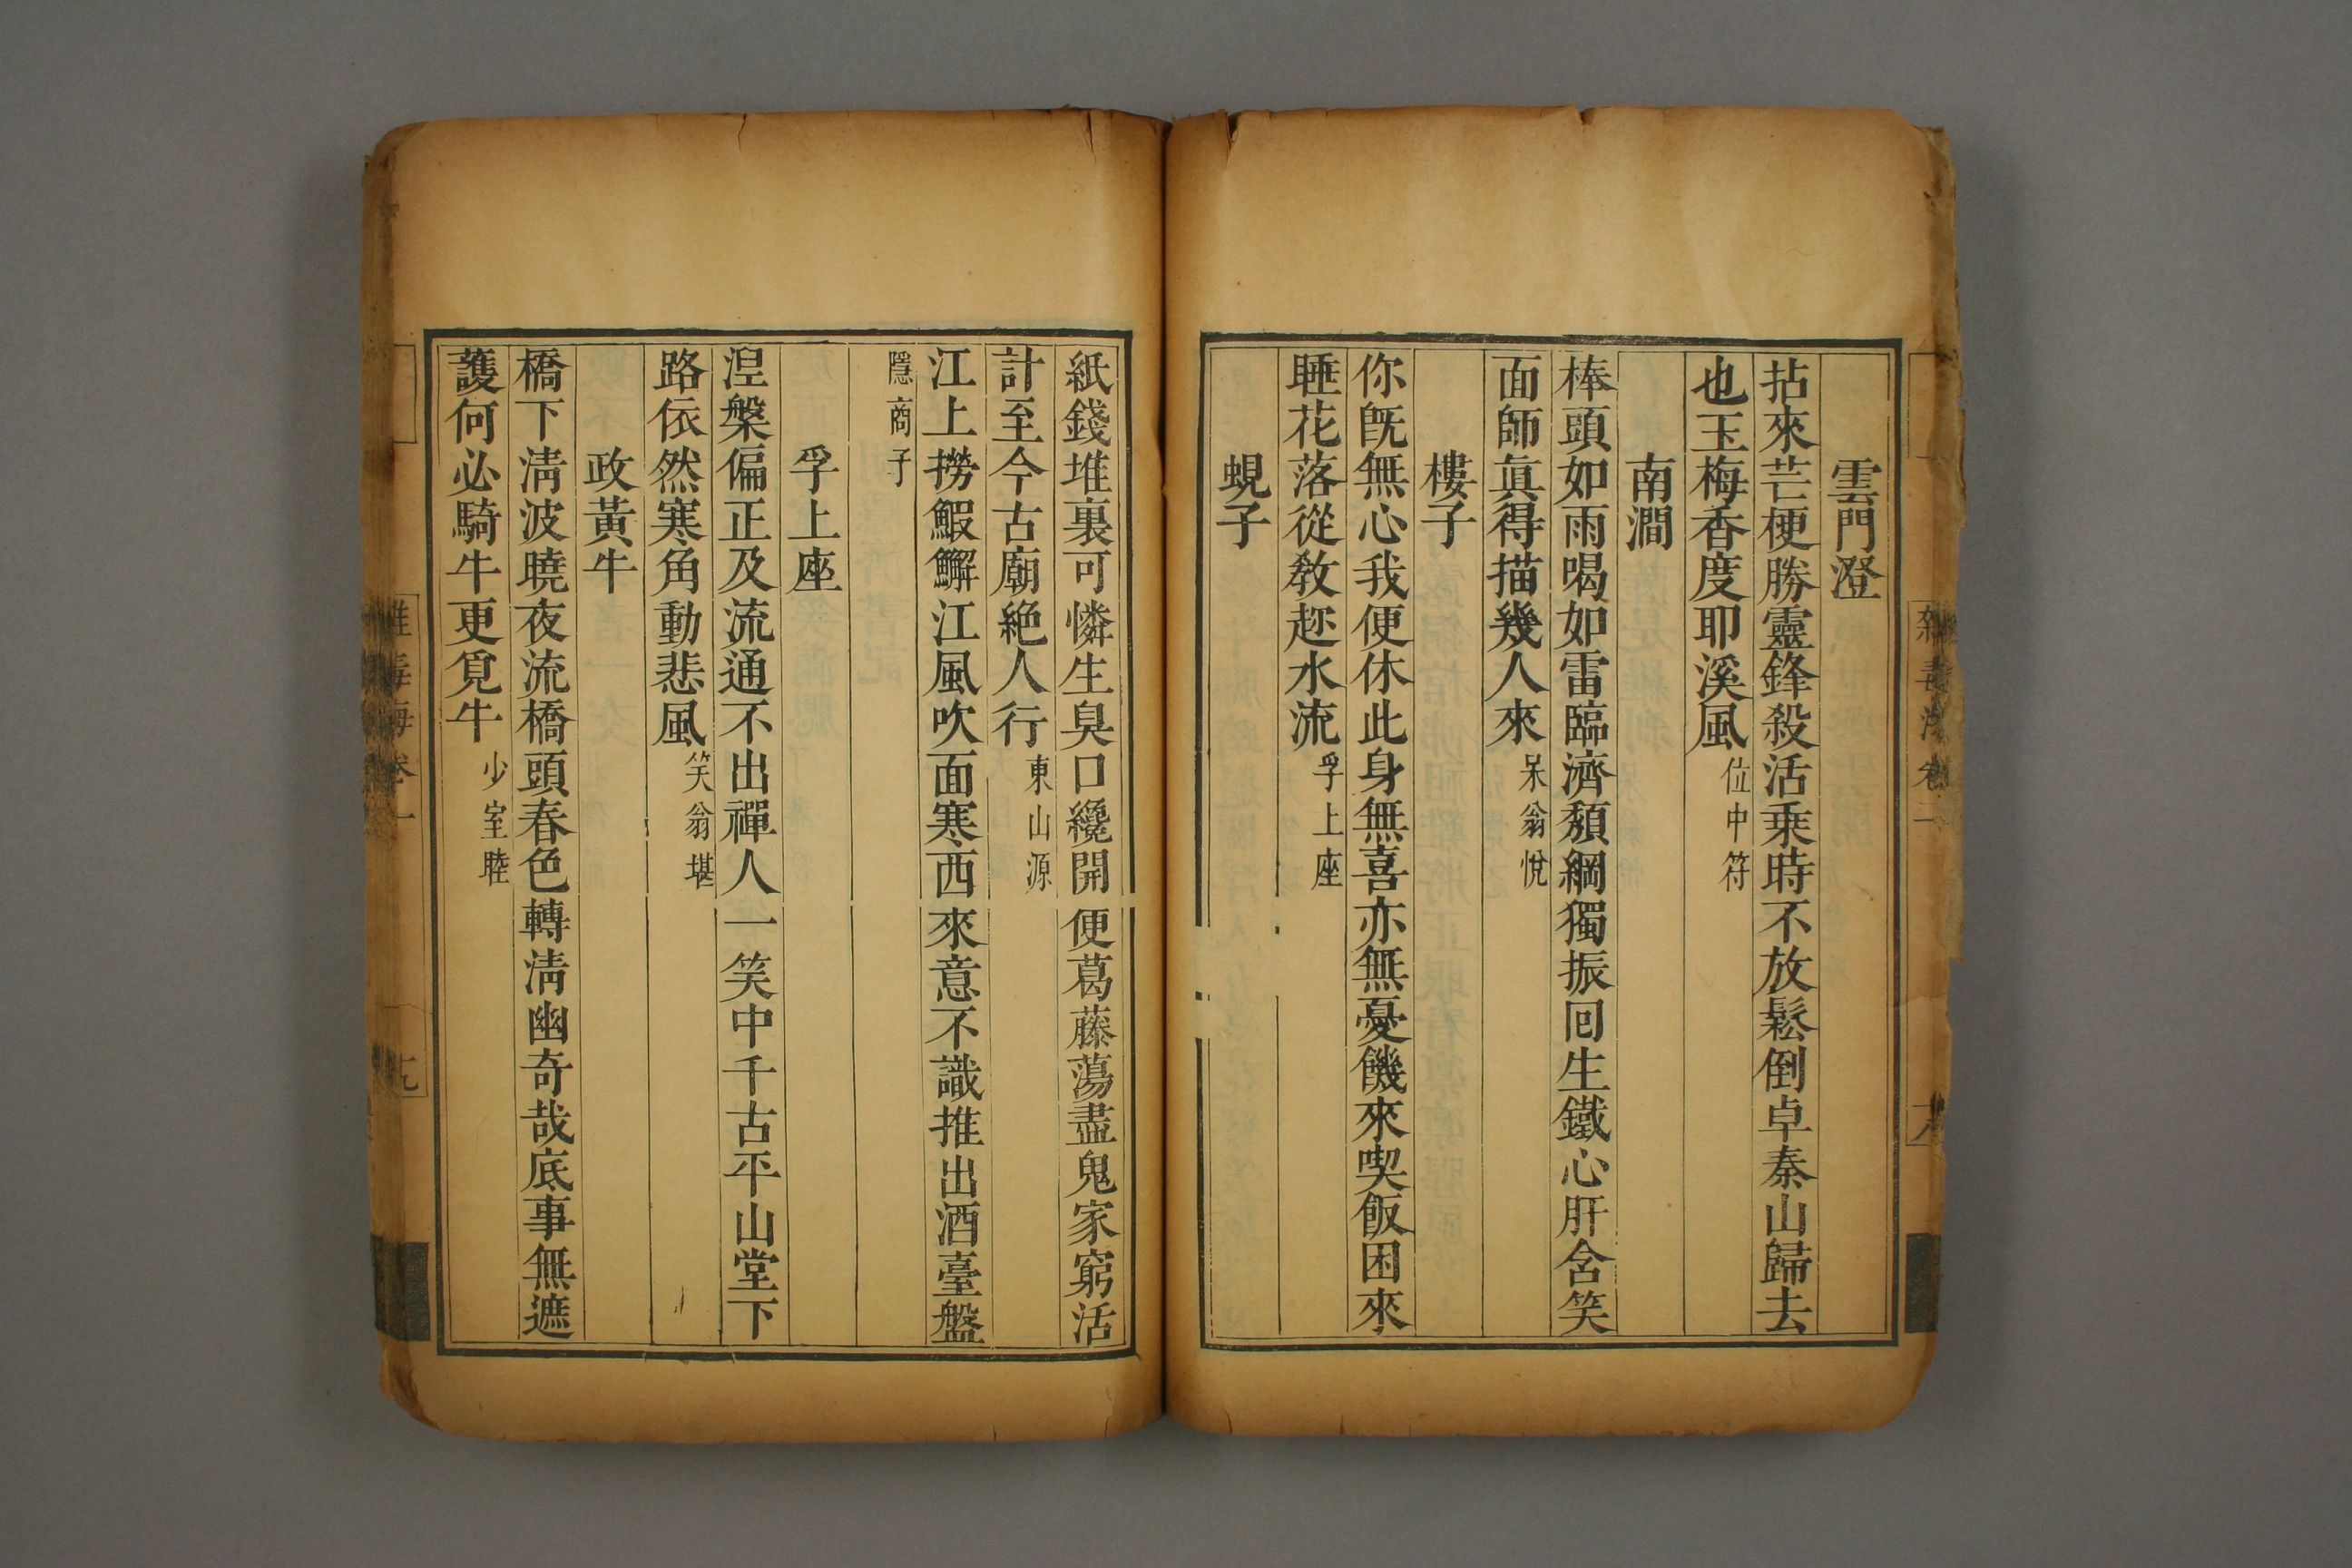 雲門澄
拈來芒㮌勝靈鋒殺活乗時不放鬆倒卓秦山歸去
也玉梅香度耶溪風位中符
南澗
棒頭如雨喝如雷臨濟頽綱獨振囘生鐵心肝含笑
面師眞得描幾人來呆翁悅
樓子
你旣無心我便休此身無喜亦無憂饑來喫飯困來
睡花落從敎趂水流孚上座
蜆子
紙錢堆裏可憐生臭口纔開便葛藤蕩盡鬼家窮活
計至今古廟絶人行東山源
江上撈鰕鱰江風吹面寒西來意不識推出酒臺盤
隱商子
孚上座
湼槃偏正及流通不出禪人一笑中千古平山堂下
路依然寒角動悲風笑翁堪
政黃牛
橋下淸波曉夜流橋頭春色轉淸幽奇哉底事無遮
護何必騎牛更覓牛少室睦